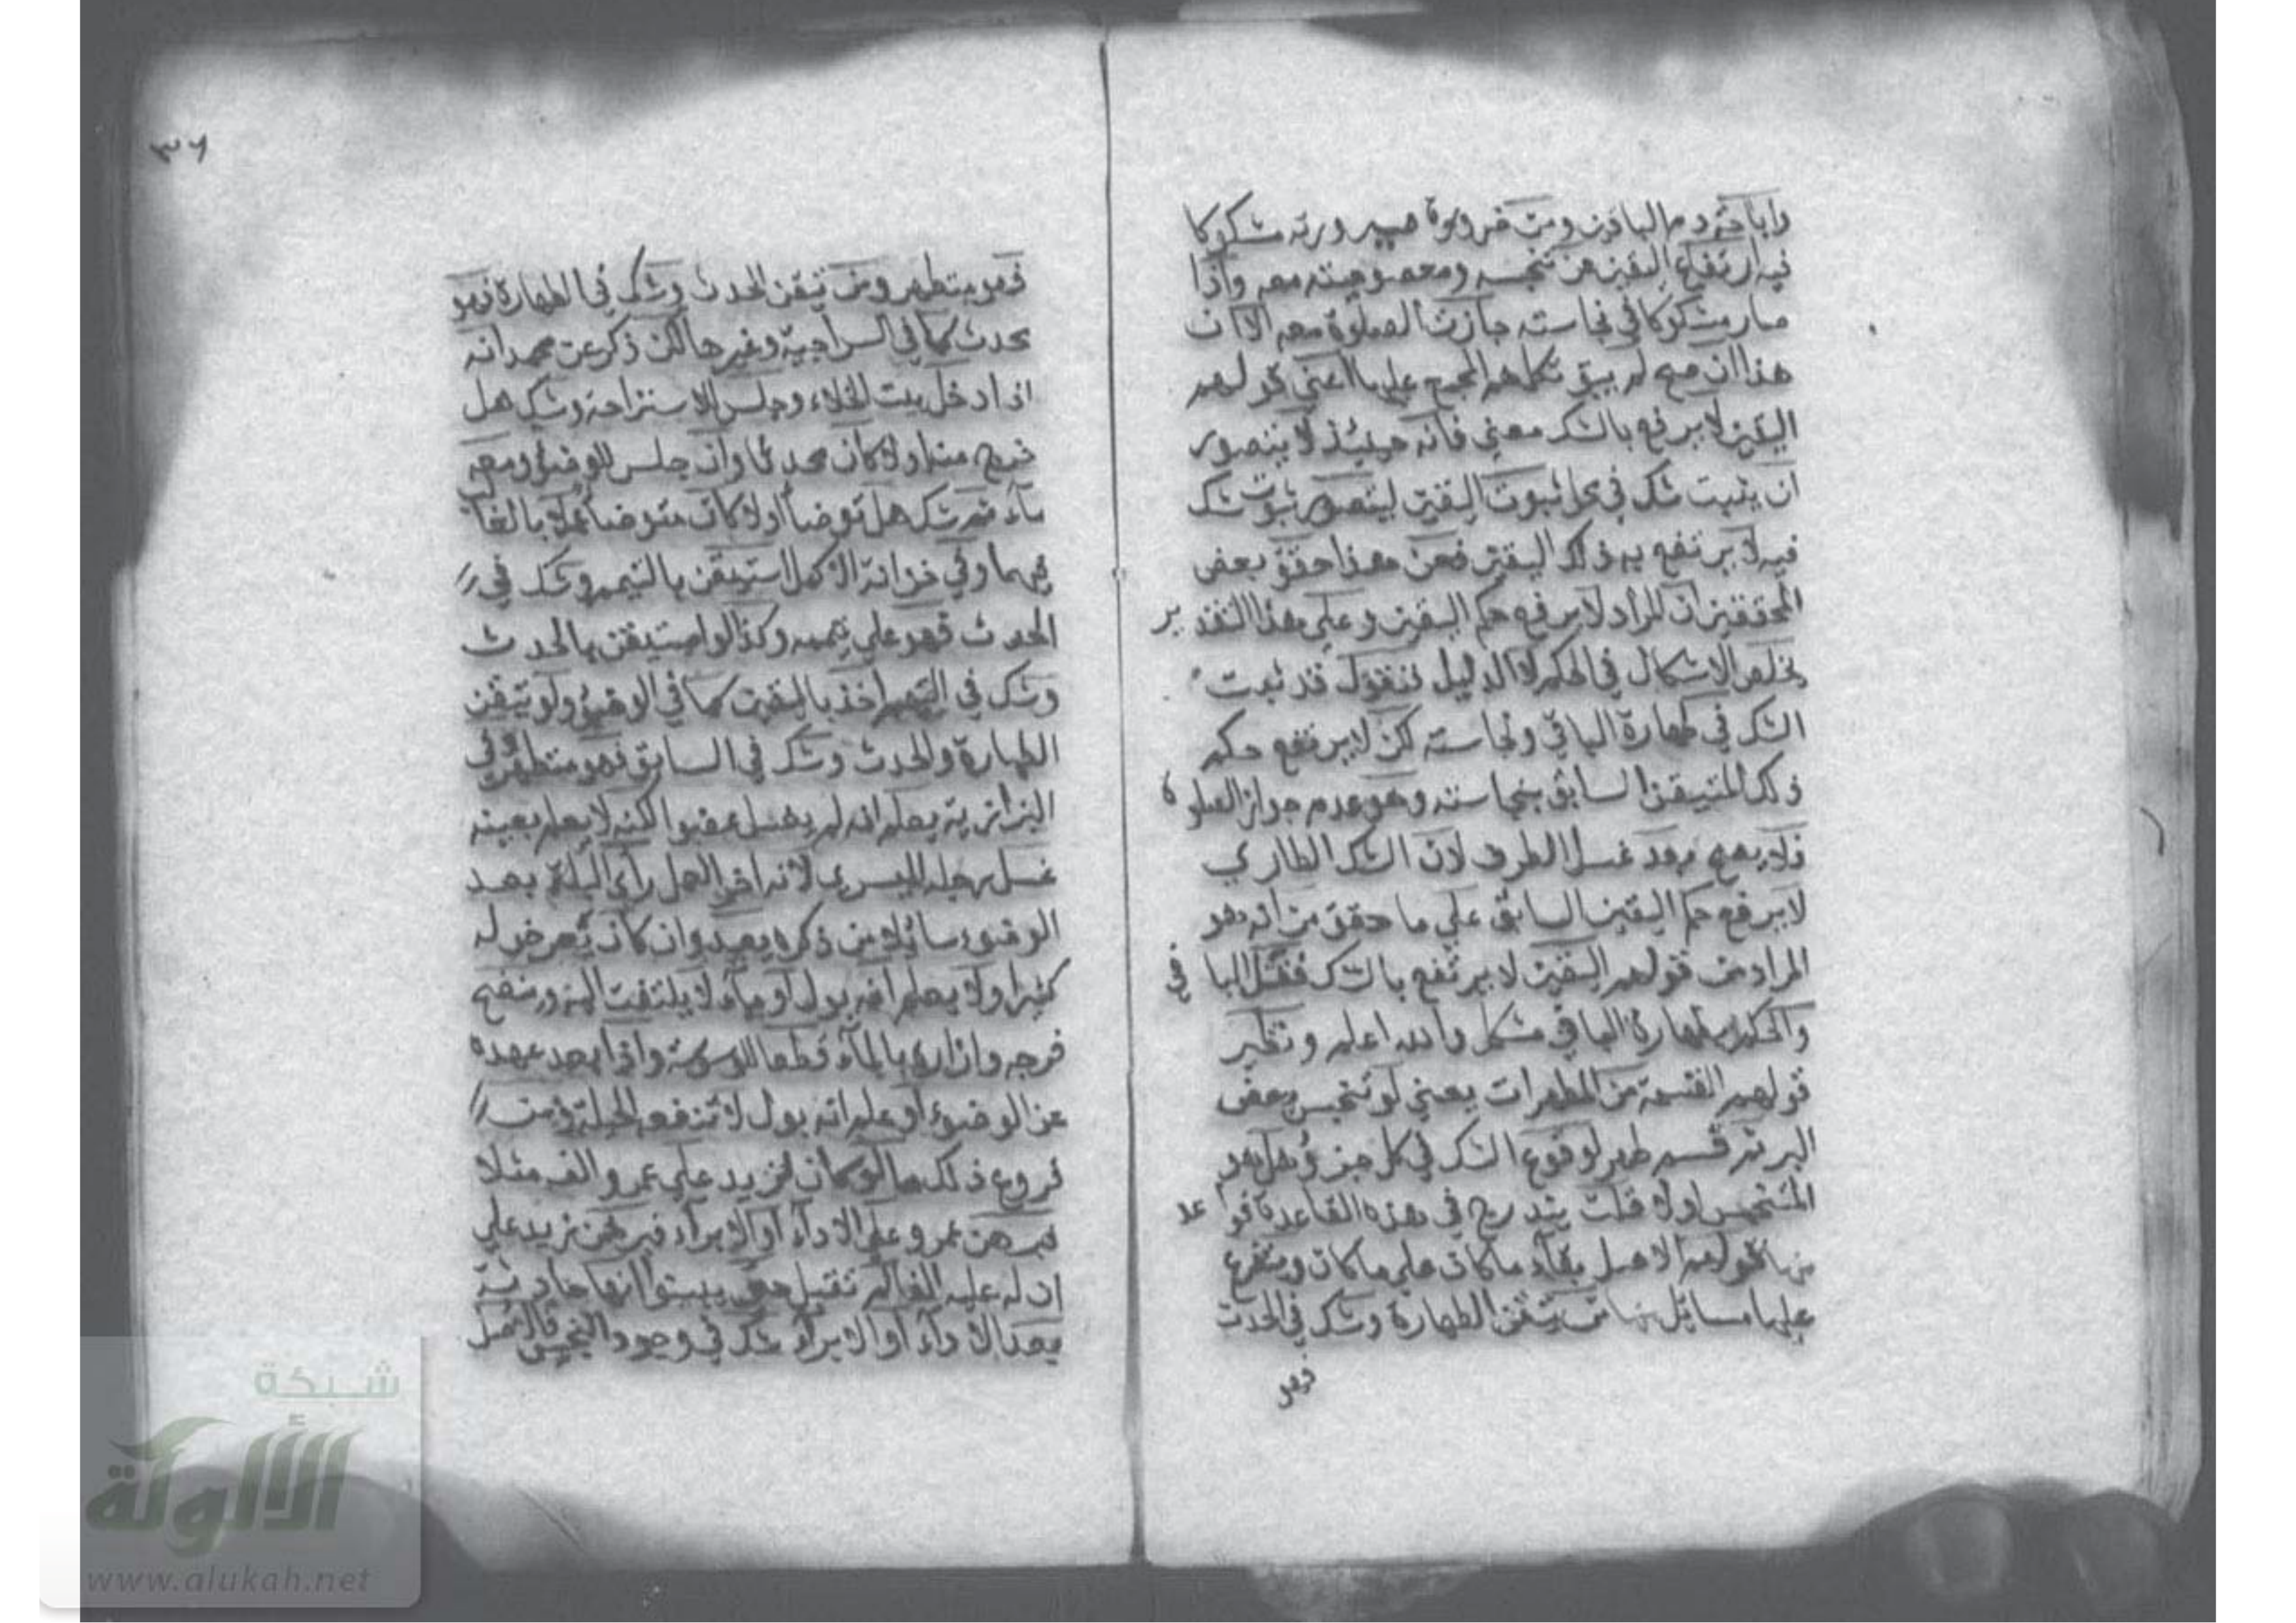 واباحة دم الباقين ومن ضرورة صيرورته مشكوكا
فيه ارتفاع اليقين عن تنجسه ومعصوميته معه واذا
صار مشكوكا في نجاسته جازت الصلوة معه الا ان
هذا ان صح لم يبق لكلمتهم المجمع عليها اعني قولهم
اليقين لا يرفع بالشك معني فانه حينئذ لا يتصور
ان يثبت شك في محل ثبوت اليقين ليتصور ثبوت شك
فيه لا يرتفع به ذلك اليقين فعن هذا حقق بعض
المحققين ان المراد لا يرفع حكم اليقين وعلي هذا التقدير
يخلص الاشكال في الحكم لا الدليل فنقول قد ثبت
الشك في طهارة الباقي ونجاسته لكن لا يرتفع حكم
ذلك المتيقن السابق بنجاسته وهو عدم جواز الصلوة
فلا يصح بعد غسل الطرف لان الشك الطاري
لا يرفع حكم اليقين السابق علي ما حقق من انه هو
المراد من قولهم اليقين لا يرتفع بالشك فقتل الباقي
والحكم بطهارة الباقي مشكل والله اعلم ونظير
قولهم القسمة من المطهرات يعني لو تنجس بعض
البر ثم قسم طهر لوقوع الشك في كل جزؤ هل هو
المتنجس اولا قلت يندرج في هذه القاعدة قواعد
منها قولهم الاصل بقاء ما كان علي ما كان ويتفرع
عليها مسائل منها من تيقن الطهارة وشك في الحدث
فهو
٣٦
فهو متطهر ومن تيقن الحدث وشك في الطهارة فهو
محدث كما في السراجية وغيرها لكن ذكر عن محمد انه
اذا دخل بيت الخلاء وجلس للاستراحة وشك هل
خرج منه اولا كان محدثا وان جلس للوضوء ومعه
ماء ثم شك هل توضأ اولا كان متوضأ عملا بالغالب
فيهما وفي خزانة الاكمل استيقن بالتيمم وشك في
الحدث فهو علي تيممه وكذا لو استيقن بالحدث
وشك في التيمم اخذ باليقين كما في الوضوء ولو تيقن
الطهارة والحدث وشك في السابق فهو متطهر وفي
البزازية يعلم انه لم يغسل عضوا لكنه لا يعلم بعينه
غسل رجله اليسري لانه اخر العمل رأي البلة بعد
الوضوء سائلا من ذكره يعيد وان كان يعرض له
كثيرا ولا يعلم انه بول او ماء لا يلتفت اليه وينضح
فرجه وازاره بالماء قطعا للوسوسة واذا بعد عهده
عن الوضوء او علم انه بول لا تنفعه الحيلة ومن
فروع ذلك ما لو كان لزيد علي عمرو الف مثلا
فبرهن عمرو علي الاداء او الابراء فبرهن زيد علي
ان له عليه الفا لم تقبل حتي يبينوا انها حادثة
بعد الاداء او الابراء شك في وجود النجس فالاصل
شبكة
الألوكة
www.alukah.net